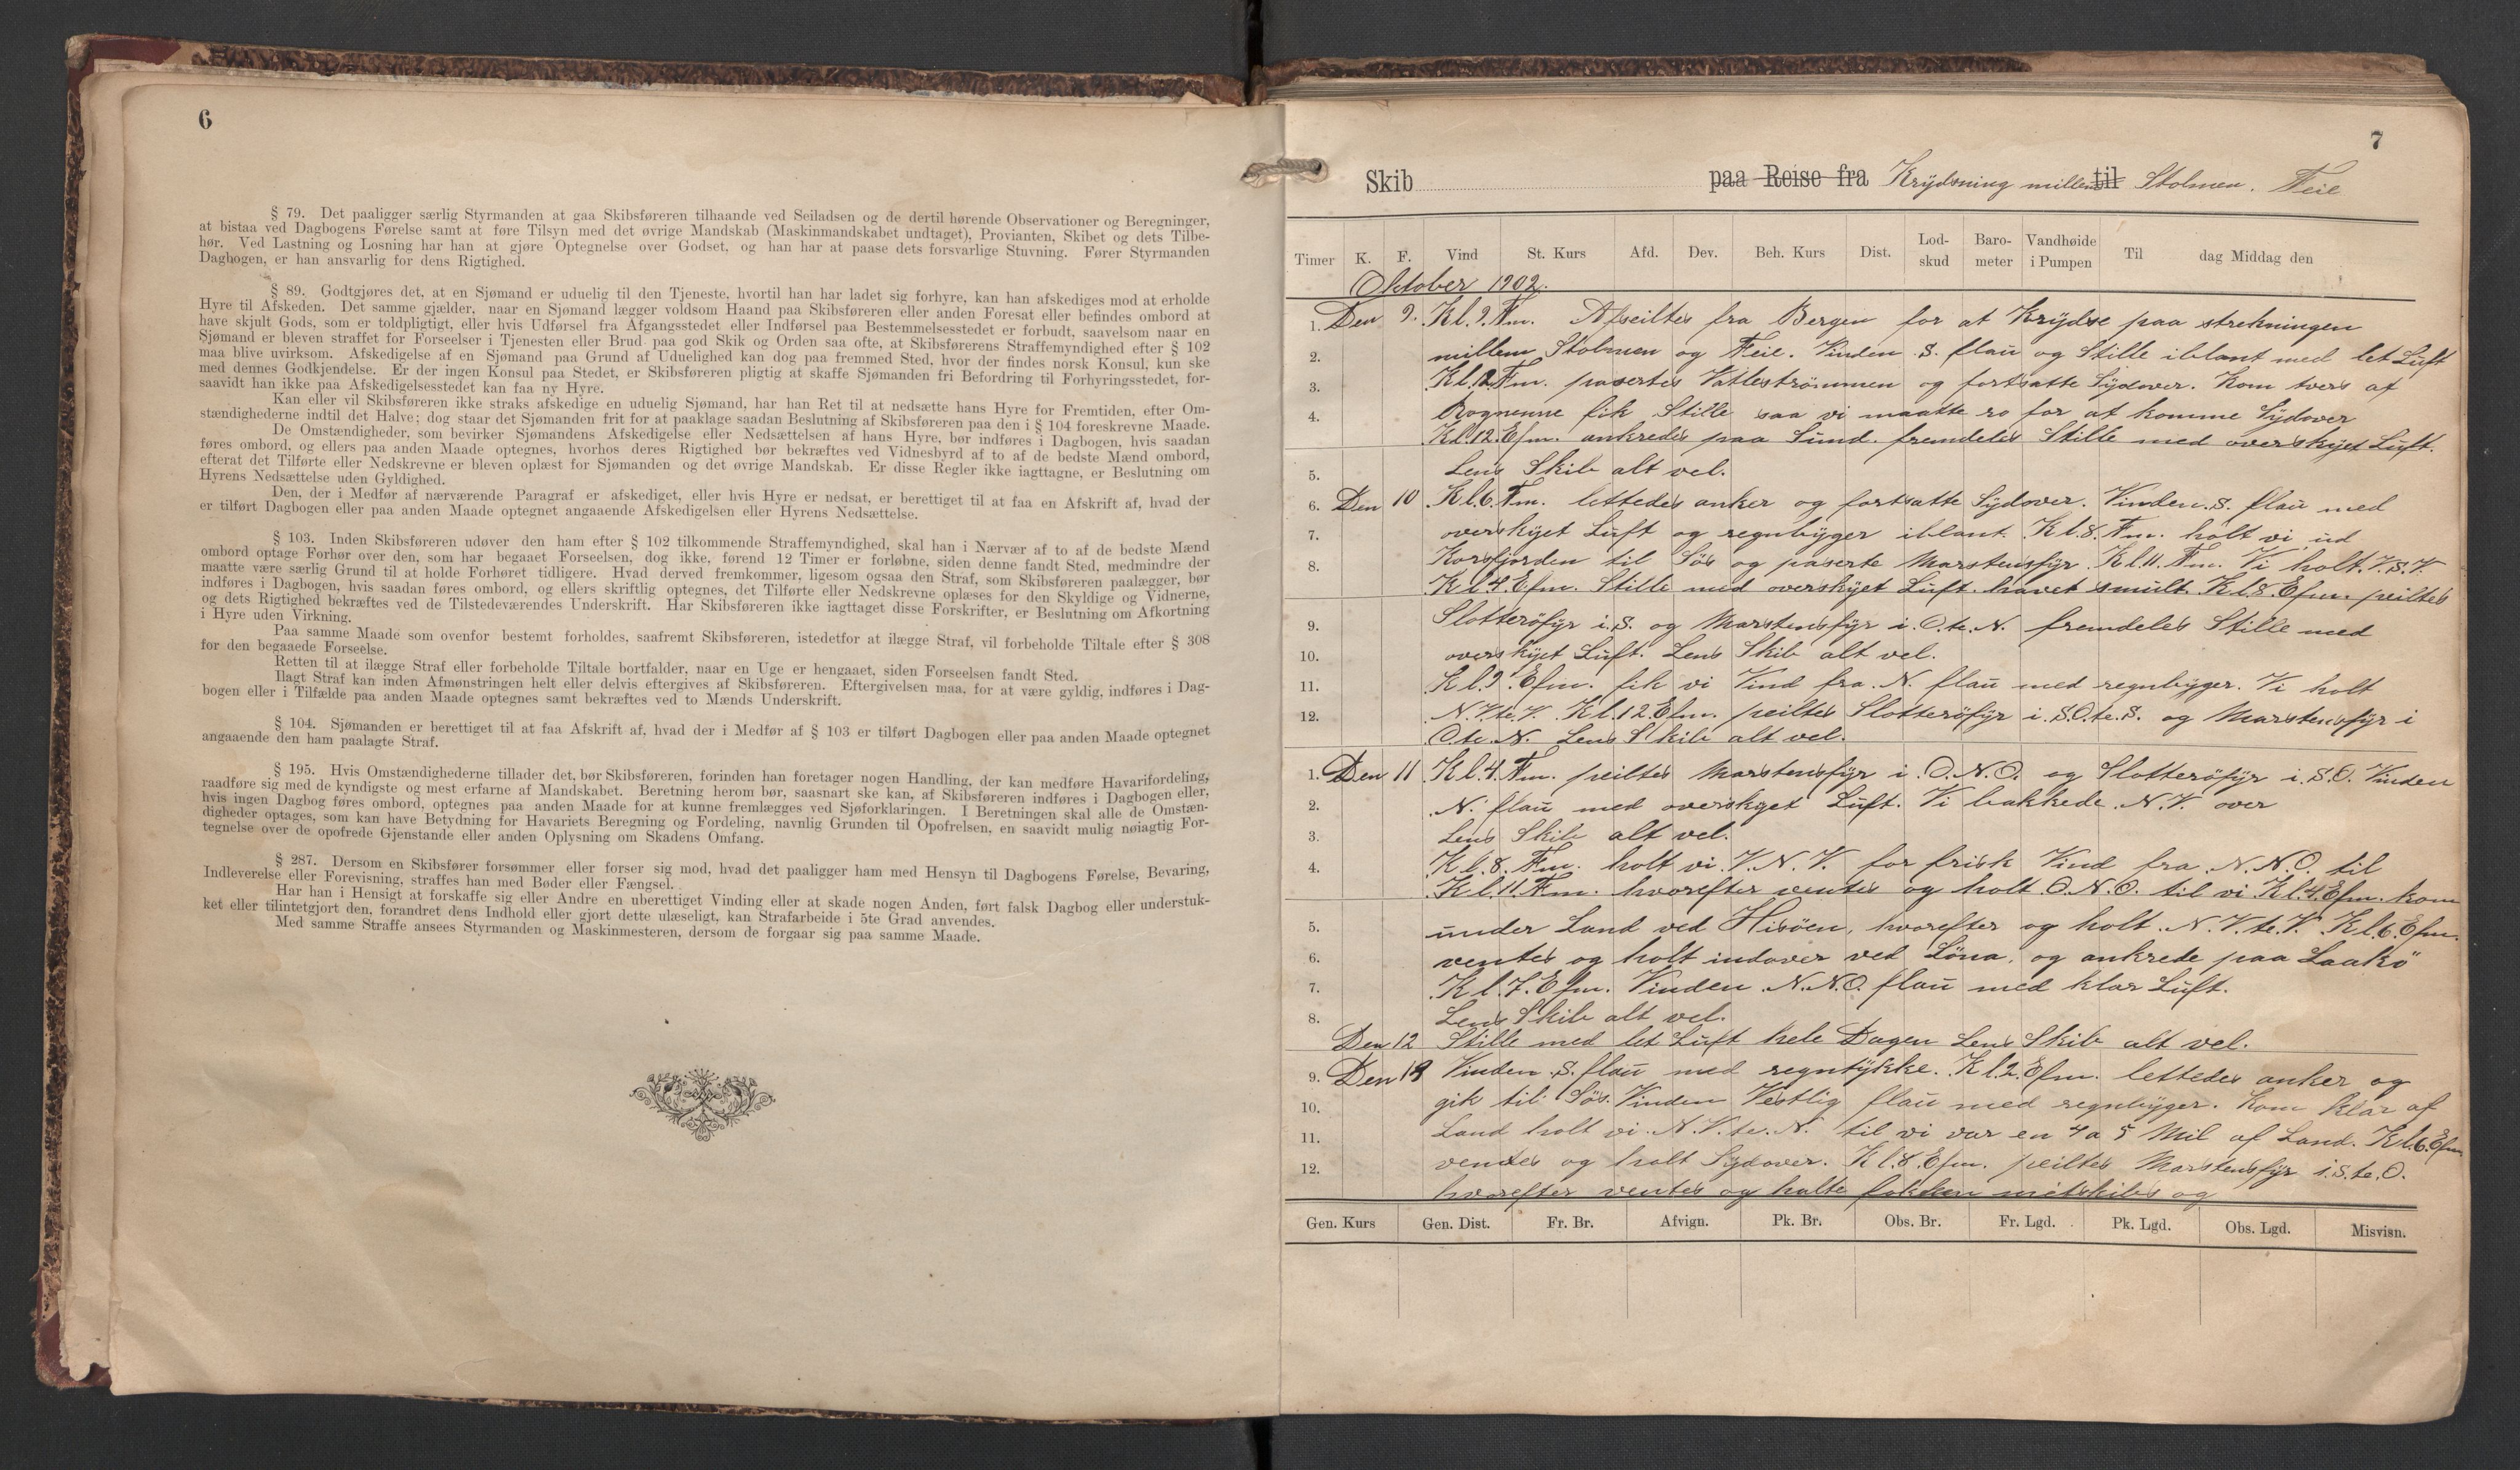 6
§ 79. Det paaligger særlig Styrmanden at gaa Skibsføreren tilhaande ved Seiladsen og de dertil hørende Observationer og Beregninger,
at bistaa ved Dagbogens Førelse samt at føre Tilsyn med det øvrige Mandskab (Maskinmandskabet undtaget), Provianten, Skibet og dets Tilbe-
hør. Ved Lastning og Losning har han at gjøre Optegnelse over Godset, og han har at paase dets forsvarlige Stuvning. Fører Styrmanden
Dagbogen, er han ansvarlig for dens Rigtighed.
§ 89. Godtgjøres det, at en Sjømand er uduelig til den Tjeneste, hvortil han har ladet sig forhyre, kan han afskediges mod at erholde
Hyre til Afskeden. Det samme gjælder, naar en Sjømand lægger voldsom Haand paa Skibsføreren eller anden Foresat eller befindes ombord at
have skjult Gods, som er toldpligtigt, eller hvis Udførsel fra Afgangsstedet eller Indførsel paa Bestemmelsesstedet er forbudt, saavelsom naar en
Sjømand er bleven straffet for Forseelser i Tjenesten eller Brud paa god Skik og Orden saa ofte, at Skibsførerens Straffemyndighed efter § 102
maa blive uvirksom. Afskedigelse af en Sjømand paa Grund af Uduelighed kan dog paa fremmed Sted, hvor der findes norsk Konsul, kun ske
med dennes Godkjendelse. Er der ingen Konsul paa Stedet, er Skibsføreren pligtig at skaffe Sjømanden fri Befordring til Forhyringsstedet, for-
saavidt han ikke paa Afskedigelsesstedet kan faa ny Hyre.
Kan eller vil Skibsføreren ikke straks afskedige en uduelig Sjømand, har han Ret til at nedsætte hans Hyre for Fremtiden, efter Om-
stændighederne indtil det Halve; dog staar det Sjømanden frit for at paaklage saadan Beslutning af Skibsføreren paa den i § 104 foreskrevne Maade.
De Omstændigheder, som bevirker Sjømandens Afskedigelse eller Nedsættelsen af hans Hyre, bør indføres i Dagbogen, hvis saadan
føres ombord, og ellers paa anden Maade optegnes, hvorhos deres Rigtighed bør bekræftes ved Vidnesbyrd af to af de bedste Mænd ombord,
efterat det Tilførte eller Nedskrevne er bleven oplæst for Sjømanden og det øvrige Mandskab. Er disse Regler ikke iagttagne, er Beslutning om
Hyrens Nedsættelse uden Gyldighed.
Den, der i Medfør af nærværende Paragraf er afskediget, eller hvis Hyre er nedsat, er berettiget til at faa en Afskrift af, hvad der
er tilført Dagbogen eller paa anden Maade optegnet angaaende Afskedigelsen eller Hyrens Nedsættelse.
§ 103. Inden Skibsføreren udøver den ham efter § 102 tilkommende Straffemyndighed, skal han i Nærvær af to af de bedste Mænd
ombord optage Forhør over den, som har begaaet Forseelsen, dog ikke, førend 12 Timer er forløbne, siden denne fandt Sted, medmindre der
maatte være særlig Grund til at holde Forhøret tidligere. Hvad derved fremkommer, ligesom ogsaa den Straf, som Skibsføreren paalægger, bør
indføres i Dagbogen, hvis saadan føres ombord, og ellers skriftlig optegnes, det Tilførte eller Nedskrevne oplæses for den Skyldige og Vidnerne,
og dets Rigtighed bekræftes ved de Tilstedeværendes Underskrift. Har Skibsføreren ikke iagttaget disse Forskrifter, er Beslutning om Afkortning
i Hyre uden Virkning.
Paa samme Maade som ovenfor bestemt forholdes, saafremt Skibsføreren, istedetfor at ilægge Straf, vil forbeholde Tiltale efter § 308
for den begaaede Forseelse.
Retten til at ilægge Straf eller forbeholde Tiltale bortfalder, naar en Uge er hengaaet, siden Forseelsen fandt Sted.
Ilagt Straf kan inden Afmønstringen helt eller delvis eftergives af Skibsføreren. Eftergivelsen maa, for at være gyldig, indføres i Dag-
bogen eller i Tilfælde paa anden Maade optegnes samt bekræftes ved to Mænds Underskrift.
§ 104. Sjømanden er berettiget til at faa Afskrift af, hvad der i Medfør af § 103 er tilført Dagbogen eller paa anden Maade optegnet
angaaende den ham paalagte Straf.
§ 195. Hvis Omstændighederne tillader det, bør Skibsføreren, forinden han foretager nogen Handling, der kan medføre Havarifordeling,
raadføre sig med de kyndigste og mest erfarne af Mandskabet. Beretning herom bør, saasnart ske kan, af Skibsføreren indføres i Dagbogen eller,
hvis ingen Dagbog føres ombord, optegnes paa anden Maade for at kunne fremlægges ved Sjøforklaringen. I Beretningen skal alle de Omstæn-
digheder optages, som kan have Betydning for Havariets Beregning og Fordeling, navnlig Grunden til Opofrelsen, en saavidt mulig nøiagtig For-
tegnelse over de opofrede Gjenstande eller anden Oplysning om Skadens Omfang.
§ 287. Dersom en Skibsfører forsømmer eller forser sig mod, hvad det paaligger ham med Hensyn til Dagbogens Førelse, Bevaring,
Indleverelse eller Forevisning, straffes han med Bøder eller Fængsel.
Har han i Hensigt at forskaffe sig eller Andre en uberettiget Vinding eller at skade nogen Anden, ført falsk Dagbog eller understuk-
ket eller tilintetgjort den, forandret dens Indhold eller gjort dette ulæseligt, kan Strafarbeide i 5te Grad anvendes.
Med samme Straffe ansees Styrmanden og Maskinmesteren, dersom de forgaar sig paa samme Maade.
7
Skib paa Reise fra Krydsning millem til Stolmen. Feie
Timer K. F. Vind St. Kurs Afd. Dev. Beh. Kurs Dist. Lod-skud Baro-meter Vandhøide i Pumpen Til dag Middag den
Oktober 1902.
1. Den 9. Kl. 9. Fm. Afseiltes fra Bergen for at Krydse paa strekningen
2. millem Stolmen og Feie. Vinden S. flau og Stille iblant med let Luft
3. Kl. 12 Fm. paserte Vatlestrømmen og fortsatte Sydover. Kom tvers af
4. Rognenne fik Stille saa vi maatte ro for at komme Sydover
Kl. 12. Efm. ankredes paa Sund. fremdeles Stille med overskyet Luft.
5. Lens Skib alt vel.
6. Den 10 Kl. 6. Fm. lettedes anker og fortsatte Sydover. Vinden. S. flau med
7. overskyet Luft og regnbyger iblant. Kl. 8. Fm. holt vi ud
8. Korsfjorden til Søs og paserte Marstensfyr. Kl. 11. Fm. Vi holt. V.S.V.
Kl. 4. Efm. Stille med overskyet Luft. havet smult. Kl. 8. Efm. peiltes
9. Slotterøfyr i. S. og Marstensfyr i. O. te. N. fremdeles Stille med
10. overskyet Luft. Lens Skib alt vel.
11. Kl. 9. Efm. fik vi Vind fra. N. flau med regnbyger. Vi holt
12. N.V. te. V. Kl. 12. Efm. peiltes Slotterøfyr i. S.O. te. S. og Marstensfyr i
O. te. N. Lens Skib alt vel.
1. Den 11 Kl. 4. Fm. peiltes Marstensfyr i. O.N.O. og Slotterøfyr i. S.O. Vinden
2. N. flau med overskyet Luft. Vi bakkede. N.V. over
3. Lens Skib alt vel.
4. Kl. 8. Fm. holt vi. V.N.V. for frisk Vind fra. N.N.O. til
Kl. 11. Fm. hvorefter ventes og holt. O.N.O. til vi Kl. 4. Efm. kom
5. under Land ved Hisøen, hvorefter og holt. N.V. te. V. Kl. 6. Efm.
6. ventes og holt indover ved Løna, og ankrede paa Laakø
7. Kl. 7. Efm. Vinden. N.N.O. flau med klar Luft.
8. Lens Skib alt vel.
Den 12 Stille med let Luft hele Dagen Lens Skib alt vel.
9. Den 13 Vinden. S. flau med regntykke. Kl. 2. Efm. lettedes anker og
10. gik til Søs. Vinden Vestlig flau med regnbyger. Kom klar af
11. Land holt vi. N.V. te. N. til vi var en 4 a 5 Mil af Land. Kl. 6. Efm
12. vendes og holt Sydover. Kl. 8. Efm. peiltes Marstensfyr i. S. te. O.
hvorefter ventes og halte fokken mitskibs og
Gen. Kurs Gen. Dist. Fr. Br. Afvign. Pk. Br. Obs. Br. Fr. Lgd. Pk. Lgd. Obs. Lgd. Misvisn.